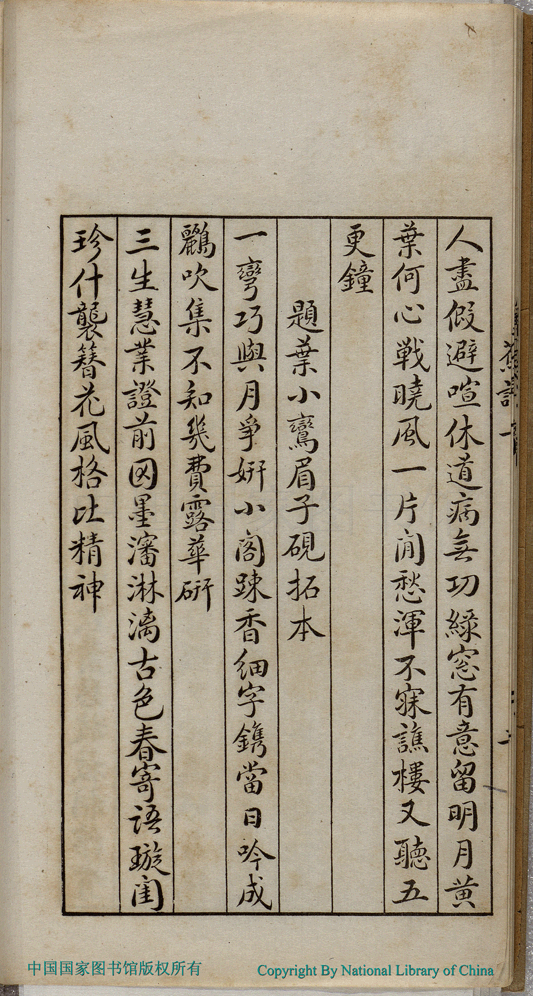 人盡假避喧休道病無功綠窓有意留明月黃
葉何心戰曉風一片閒愁渾不寐譙樓又聽五
更鐘
題葉小鸞眉子硯拓本
一彎巧與月爭妍小閣踈香細字鐫當日吟成
鸝吹集不知幾費露華硏
三生慧業證前因墨瀋淋漓古色春寄語璇閨
珍什襲簪花風格比精神
中国国家图书馆版权所有
Copyright By National Library of China